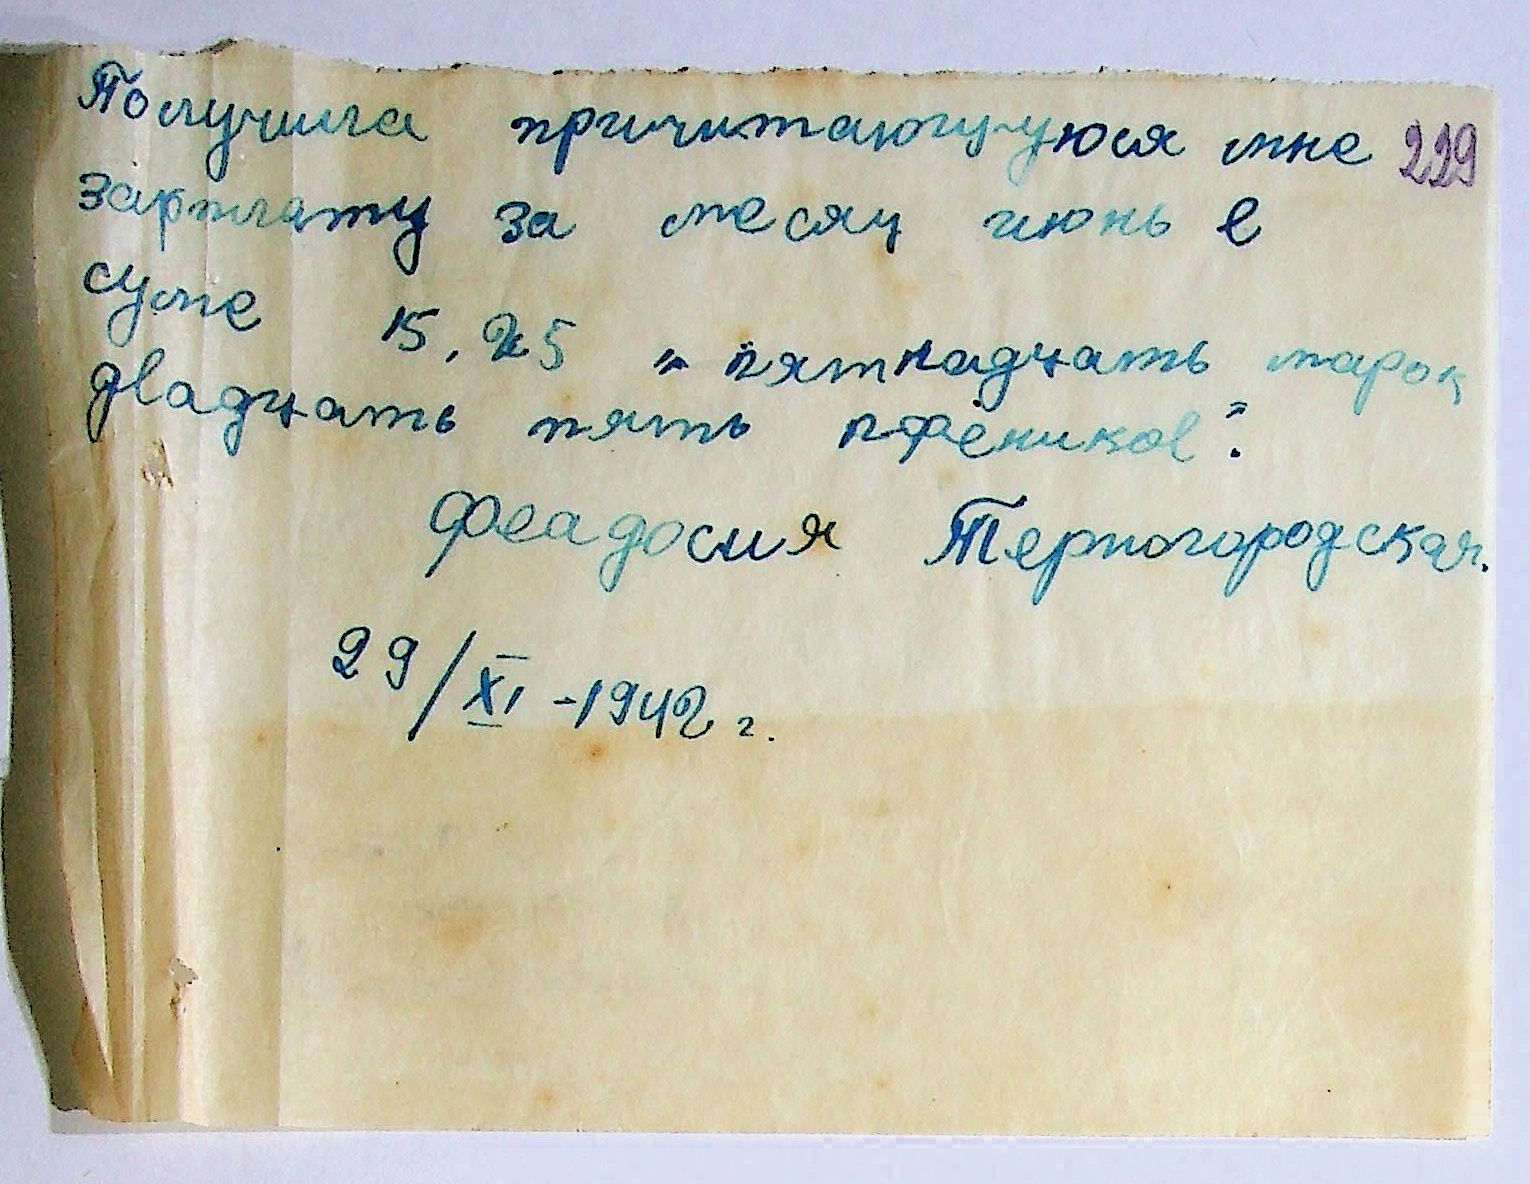 Получила причитающуюся мне 229
зарплату за месяц июнь в
суме 15,25 „пятнадцать марок
двадцать пять пфеников“.
Феадосия Терногородская.
29/XI-1942 г.